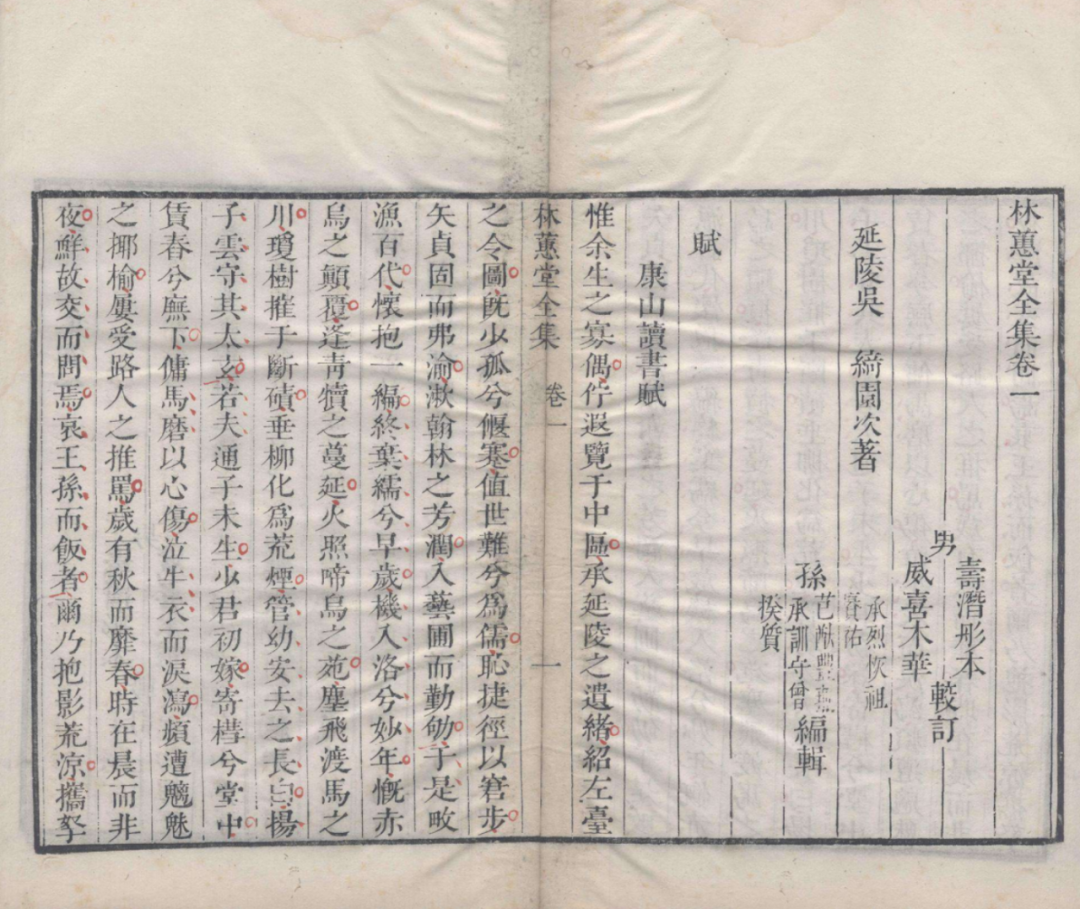 林蕙堂全集卷一
壽潛形本
男
較訂
威喜木華
延陵吳 綺園次著
承烈恢祖
賚佑
孫
芑猷
承訓守曾
編輯
揆質
賦
康山讀書賦
惟余生之寡偶佇遐覽于中區承延陵之遺緒紹左臺
林蕙堂全集 卷一 一
之令圖旣少孤兮偃蹇值世難兮爲儒恥捷徑以窘步
矢貞固而弗渝漱翰林之芳潤入藝圃而勤劬于是畋
漁百代懷抱一編終葉繻兮早歲機入洛兮妙年慨赤
烏之顛覆逢青犢之蔓延火照啼烏之苑塵飛渡馬之
川瓊樹摧于斷磧垂柳化爲荒煙管幼安去之長白揚
子雲守其太玄若夫通子未生少君初嫁寄槥兮堂中
賃春兮廡下傭馬磨以心傷泣牛衣而淚瀉頻遭魑魅
之揶榆屢受路人之推罵歲有秋而靡春時在晨而非
夜鮮故交而問焉哀王孫而飯者爾乃抱影荒凉攜孥